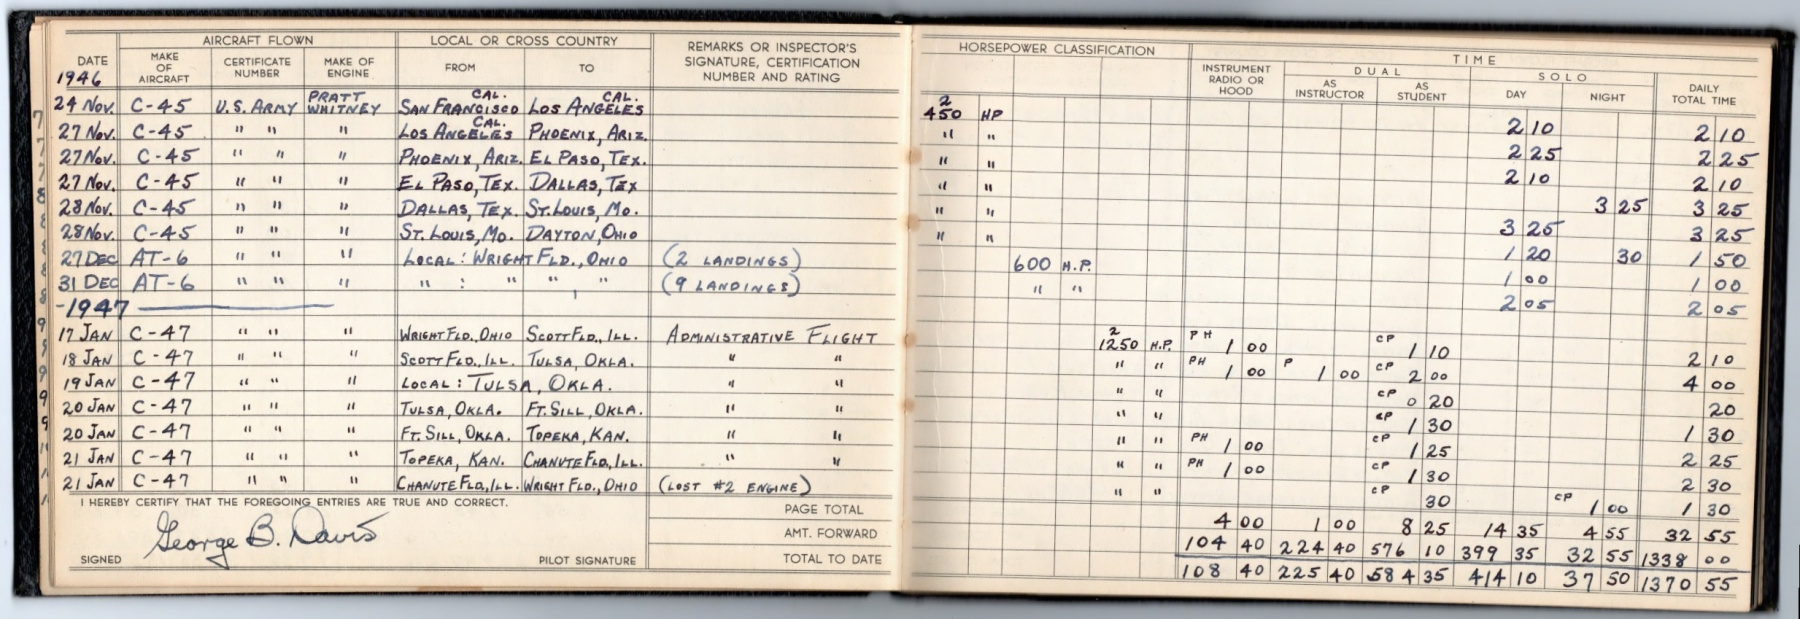 AIRCRAFT FLOWN LOCAL OR CROSS COUNTRY REMARKS OR INSPECTOR'S SIGNATURE, CERTIFICATION NUMBER AND RATING HORSEPOWER CLASSIFICATION TIME
DATE MAKE OF AIRCRAFT CERTIFICATE NUMBER MAKE OF ENGINE FROM TO INSTRUMENT RADIO OR HOOD DUAL AS INSTRUCTOR AS STUDENT SOLO DAY NIGHT DAILY TOTAL TIME
1946
24 Nov. C-45 U.S. ARMY PRATT WHITNEY SAN FRANCISCO CAL. LOS ANGELES CAL. 2 450 HP 2 10 2 10
27 Nov. C-45 " " " LOS ANGELES CAL. PHOENIX, ARIZ. " " 2 25 2 25
27 Nov. C-45 " " " PHOENIX, ARIZ. EL PASO, TEX. " " 2 10 2 10
27 Nov. C-45 " " " EL PASO, TEX. DALLAS, TEX " " 3 25 3 25
28 Nov. C-45 " " " DALLAS, TEX. ST. LOUIS, MO. " " 3 25 3 25
28 Nov. C-45 " " " ST. LOUIS, MO. DAYTON, OHIO " " 1 20 30 1 50
27 DEC AT-6 " " " LOCAL: WRIGHT FLD., OHIO (2 LANDINGS) 600 H.P. 1 00 1 00
31 DEC AT-6 " " " " : " " " (9 LANDINGS) " " 2 05 2 05
-1947
17 JAN C-47 " " " WRIGHT FLD., OHIO SCOTT FLD., ILL. ADMINISTRATIVE FLIGHT 2 1250 H.P. PH 1 00 CP 1 10 2 10
18 JAN C-47 " " " SCOTT FLD., ILL. TULSA, OKLA. " " " " PH 1 00 P 1 00 CP 2 00 4 00
19 JAN C-47 " " " LOCAL: TULSA, OKLA. " " " " CP 0 20 20
20 JAN C-47 " " " TULSA, OKLA. FT. SILL, OKLA. " " " " CP 1 30 1 30
20 JAN C-47 " " " FT. SILL, OKLA. TOPEKA, KAN. " " " " PH 1 00 CP 1 25 2 25
21 JAN C-47 " " " TOPEKA, KAN. CHANUTE FLD., ILL. " " " " PH 1 00 CP 1 30 2 30
21 JAN C-47 " " " CHANUTE FLD., ILL. WRIGHT FLD., OHIO (LOST #2 ENGINE) " " CP 30 CP 1 00 1 30
I HEREBY CERTIFY THAT THE FOREGOING ENTRIES ARE TRUE AND CORRECT.
PAGE TOTAL 4 00 1 00 8 25 14 35 4 55 32 55
George B. Davis
AMT. FORWARD 104 40 224 40 576 10 399 35 32 55 1338 00
SIGNED PILOT SIGNATURE TOTAL TO DATE 108 40 225 40 584 35 414 10 37 50 1370 55